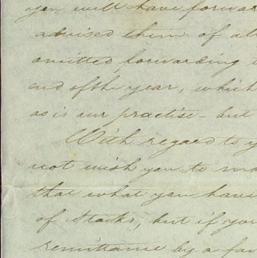 you will have forwar
advised them of al
omitted forwarding
end of the year, which
as is our practise - but
With regard to y
not wish you to ma
that what you have
of Stocks, but if you
remittance by a fav